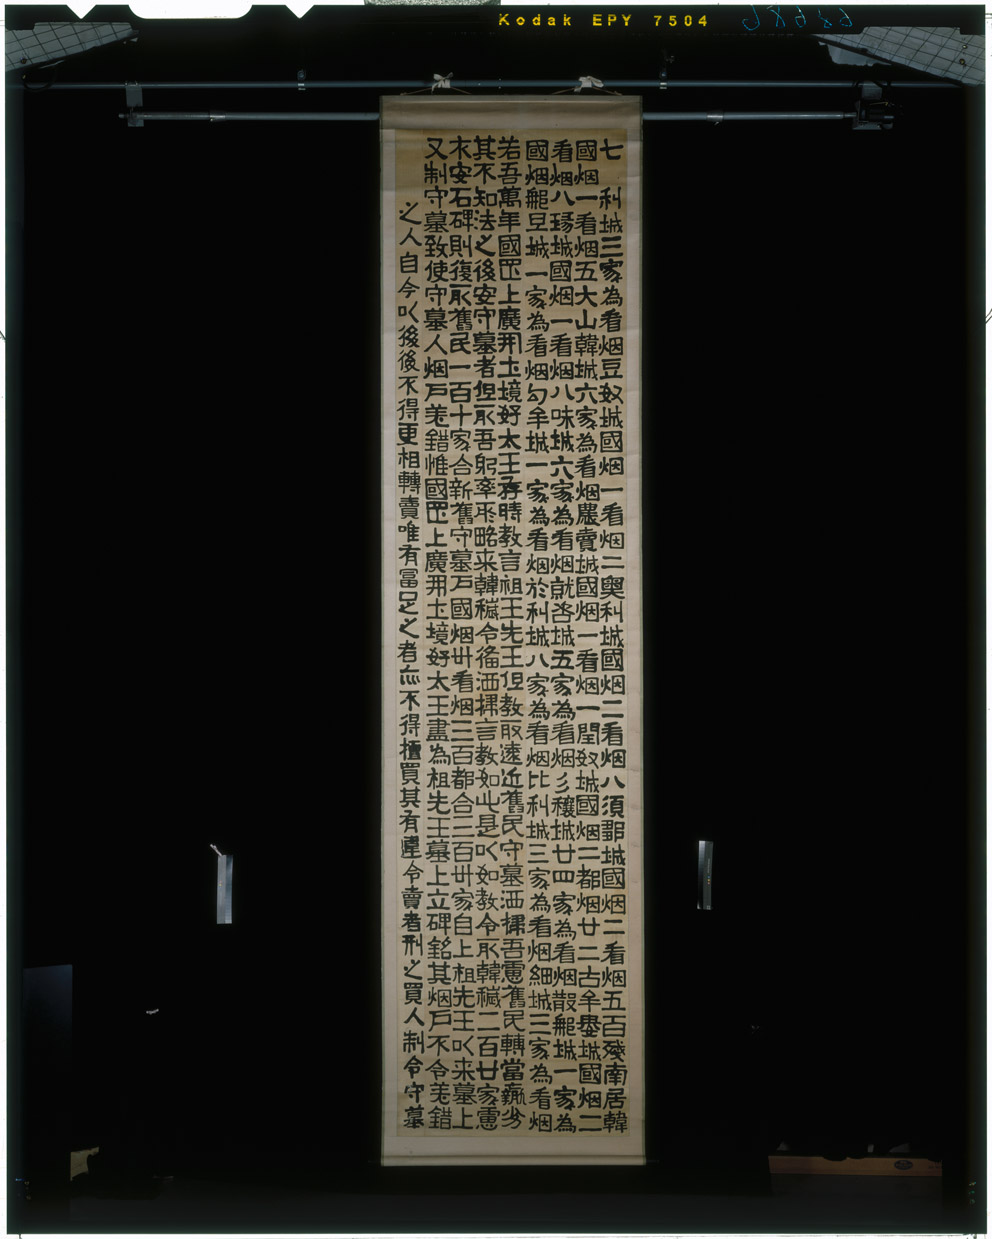 七利城三家為看烟豆奴城國烟一看烟二奧利城國烟二看烟八須鄒城國烟二看烟五百殘南居韓
國烟一看烟五大山韓城六家為看烟農賣城國烟一看烟一閏奴城國烟二都烟廿二古牟婁城國烟二
看烟八瑑城國烟一看烟八味城六家為看烟就咨城五家為看烟彡穰城廿四家為看烟散那城一家為
國烟那旦城一家為看烟勾牟城一家為看烟於利城八家為看烟比利城三家為看烟細城三家為看烟
若吾萬年國罡上廣開土境好太王存時教言祖王先王但教取遠近舊民守墓洒掃吾慮舊民轉當羸劣
其不知法之後安守墓者但取吾躬率所略来韓穢令俻洒掃言教如此是以如教令取韓穢二百廿家慮
木安石碑則復取舊民一百十家合新舊守墓戸國烟卅看烟三百都合三百卅家自上祖先王以来墓上
又制守墓致使守墓人烟戸羌錯惟國罡上廣開土境好太王盡為祖先王墓上立碑銘其烟戸不令羌錯
之人自今以後後不得更相轉賣唯有富足之者亦不得擅買其有違令賣者刑之買人制令守墓
Kodak EPY 7504